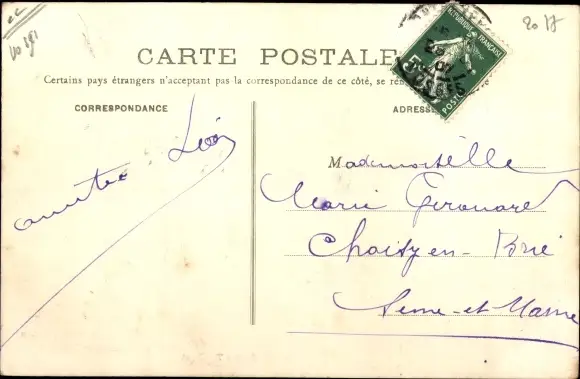 2017
CARTE POSTALE
Certains pays étrangers n'acceptent pas la correspondance de ce côté, se
CORRESPONDANCE
ADRESSE
RÉPUBLIQUE FRANÇAISE
5c
POSTES
amitiés Léon
Mademoiselle
Marie Girouard
Choisy en Brie
Seine-et-Marne